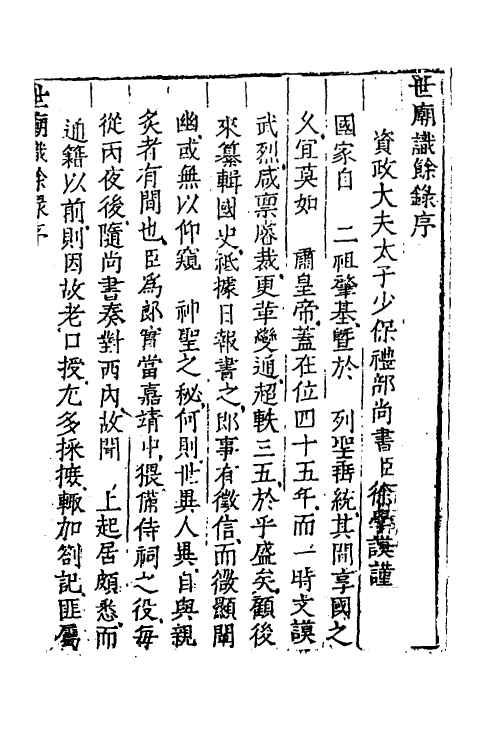 世廟識餘錄序
資政大夫太子少保禮部尚書臣徐學謨謹
國家自 二祖肇基暨於 列聖垂統其間享國之
久宜莫如 肅皇帝蓋在位四十五年而一時文謨
武烈咸稟濬裁更革變通超軼三五於乎盛矣顧後
來纂輯國史祗據日報書之郎事有徵信而微顯闡
幽或無以仰窺 神聖之秘何則世異人異自與親
炙者有間也臣為郎實當嘉靖中猥備侍祠之役每
從丙夜後隨尚書奏對西內故聞 上起居頗悉而
通籍以前則因故老口授尤多採摭輒加劄記匪屬
世廟識餘錄序